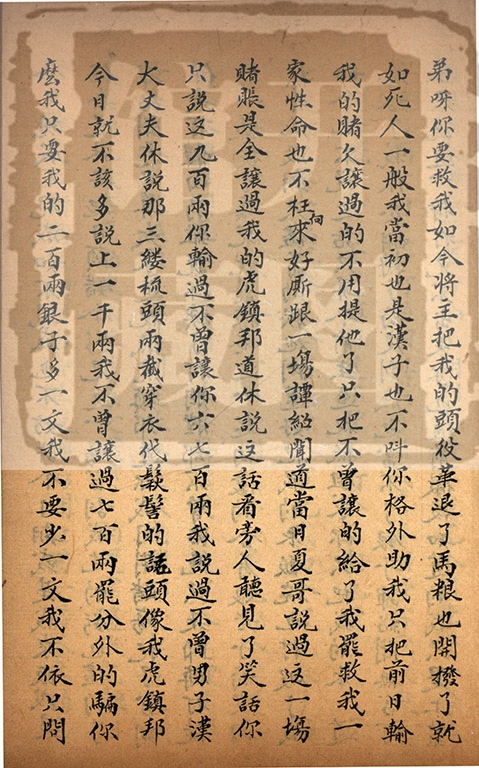 弟呀你要救我如今将主把我的頭役革退了馬粮也開撥了就
如死人一般我當初也是漢子也不呌你格外助我只把前日輸
我的賭欠讓過的不用提他了只把不曾讓的給了我罷救我一
家性命也不枉向來好厮跟一塲譚紹聞道當日夏哥說過這一塲
賭賬是全讓過我的虎鎮邦道休說這話看旁人聽見了笑話你
只說这九百兩你輸過不曾讓你六七百兩我說過不曾男子漢
大丈夫休説那三縷梳頭兩截穿衣代䯼髻的話頭像我虎鎮邦
今日就不該多説上一千兩我不曾讓過七百兩罷分外的騙你
麽我只要我的二百兩銀子多一文我不要少一文我不依只問